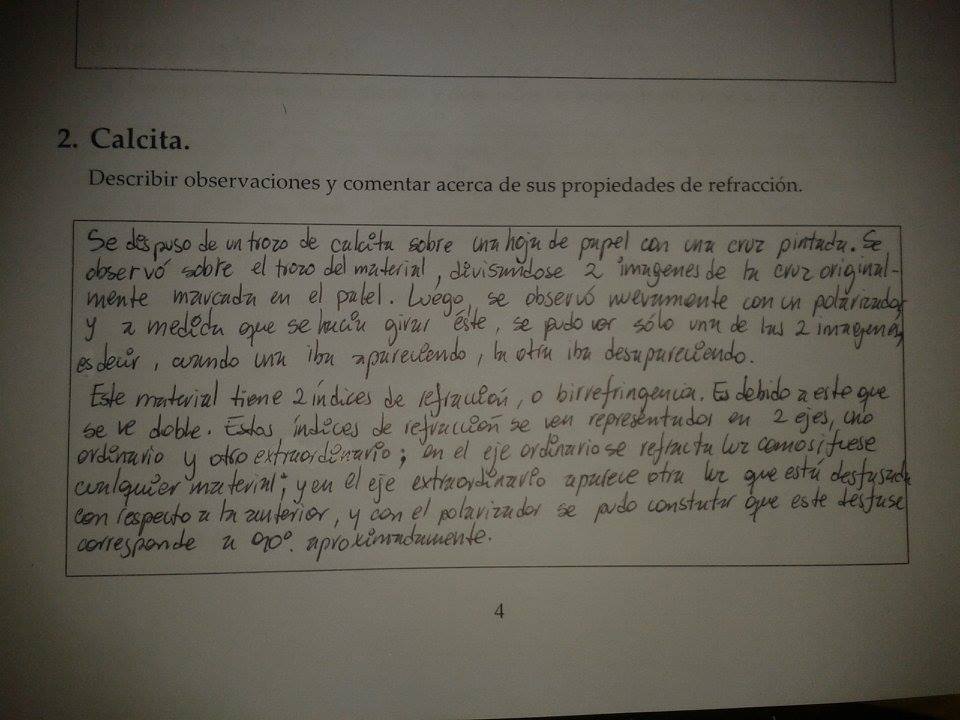 2. Calcita.
Describir observaciones y comentar acerca de sus propiedades de refracción.
Se dispuso de un trozo de calcita sobre una hoja de papel con una cruz pintada. Se
observó sobre el trozo del material, divisándose 2 imagenes de la cruz original-
mente marcada en el palel. Luego, se observó nuevamente con un polarizador
y a medida que se hacía girar éste, se pudo ver sólo una de las 2 imagenes,
es decir, cuando una iba apareciendo, la otra iba desapareciendo.
Este material tiene 2 índices de refracción, o birrefringencia. Es debido a esto que
se ve doble. Estos índices de refracción se ven representados en 2 ejes, uno
ordinario y otro extraordinario; en el eje ordinario se refracta luz como si fuese
cualquier material; y en el eje extraordinario aparece otra luz que está desfasada
con respecto a la anterior, y con el polarizador se pudo constatar que este desfase
corresponde a 90° aproximadamente.
4